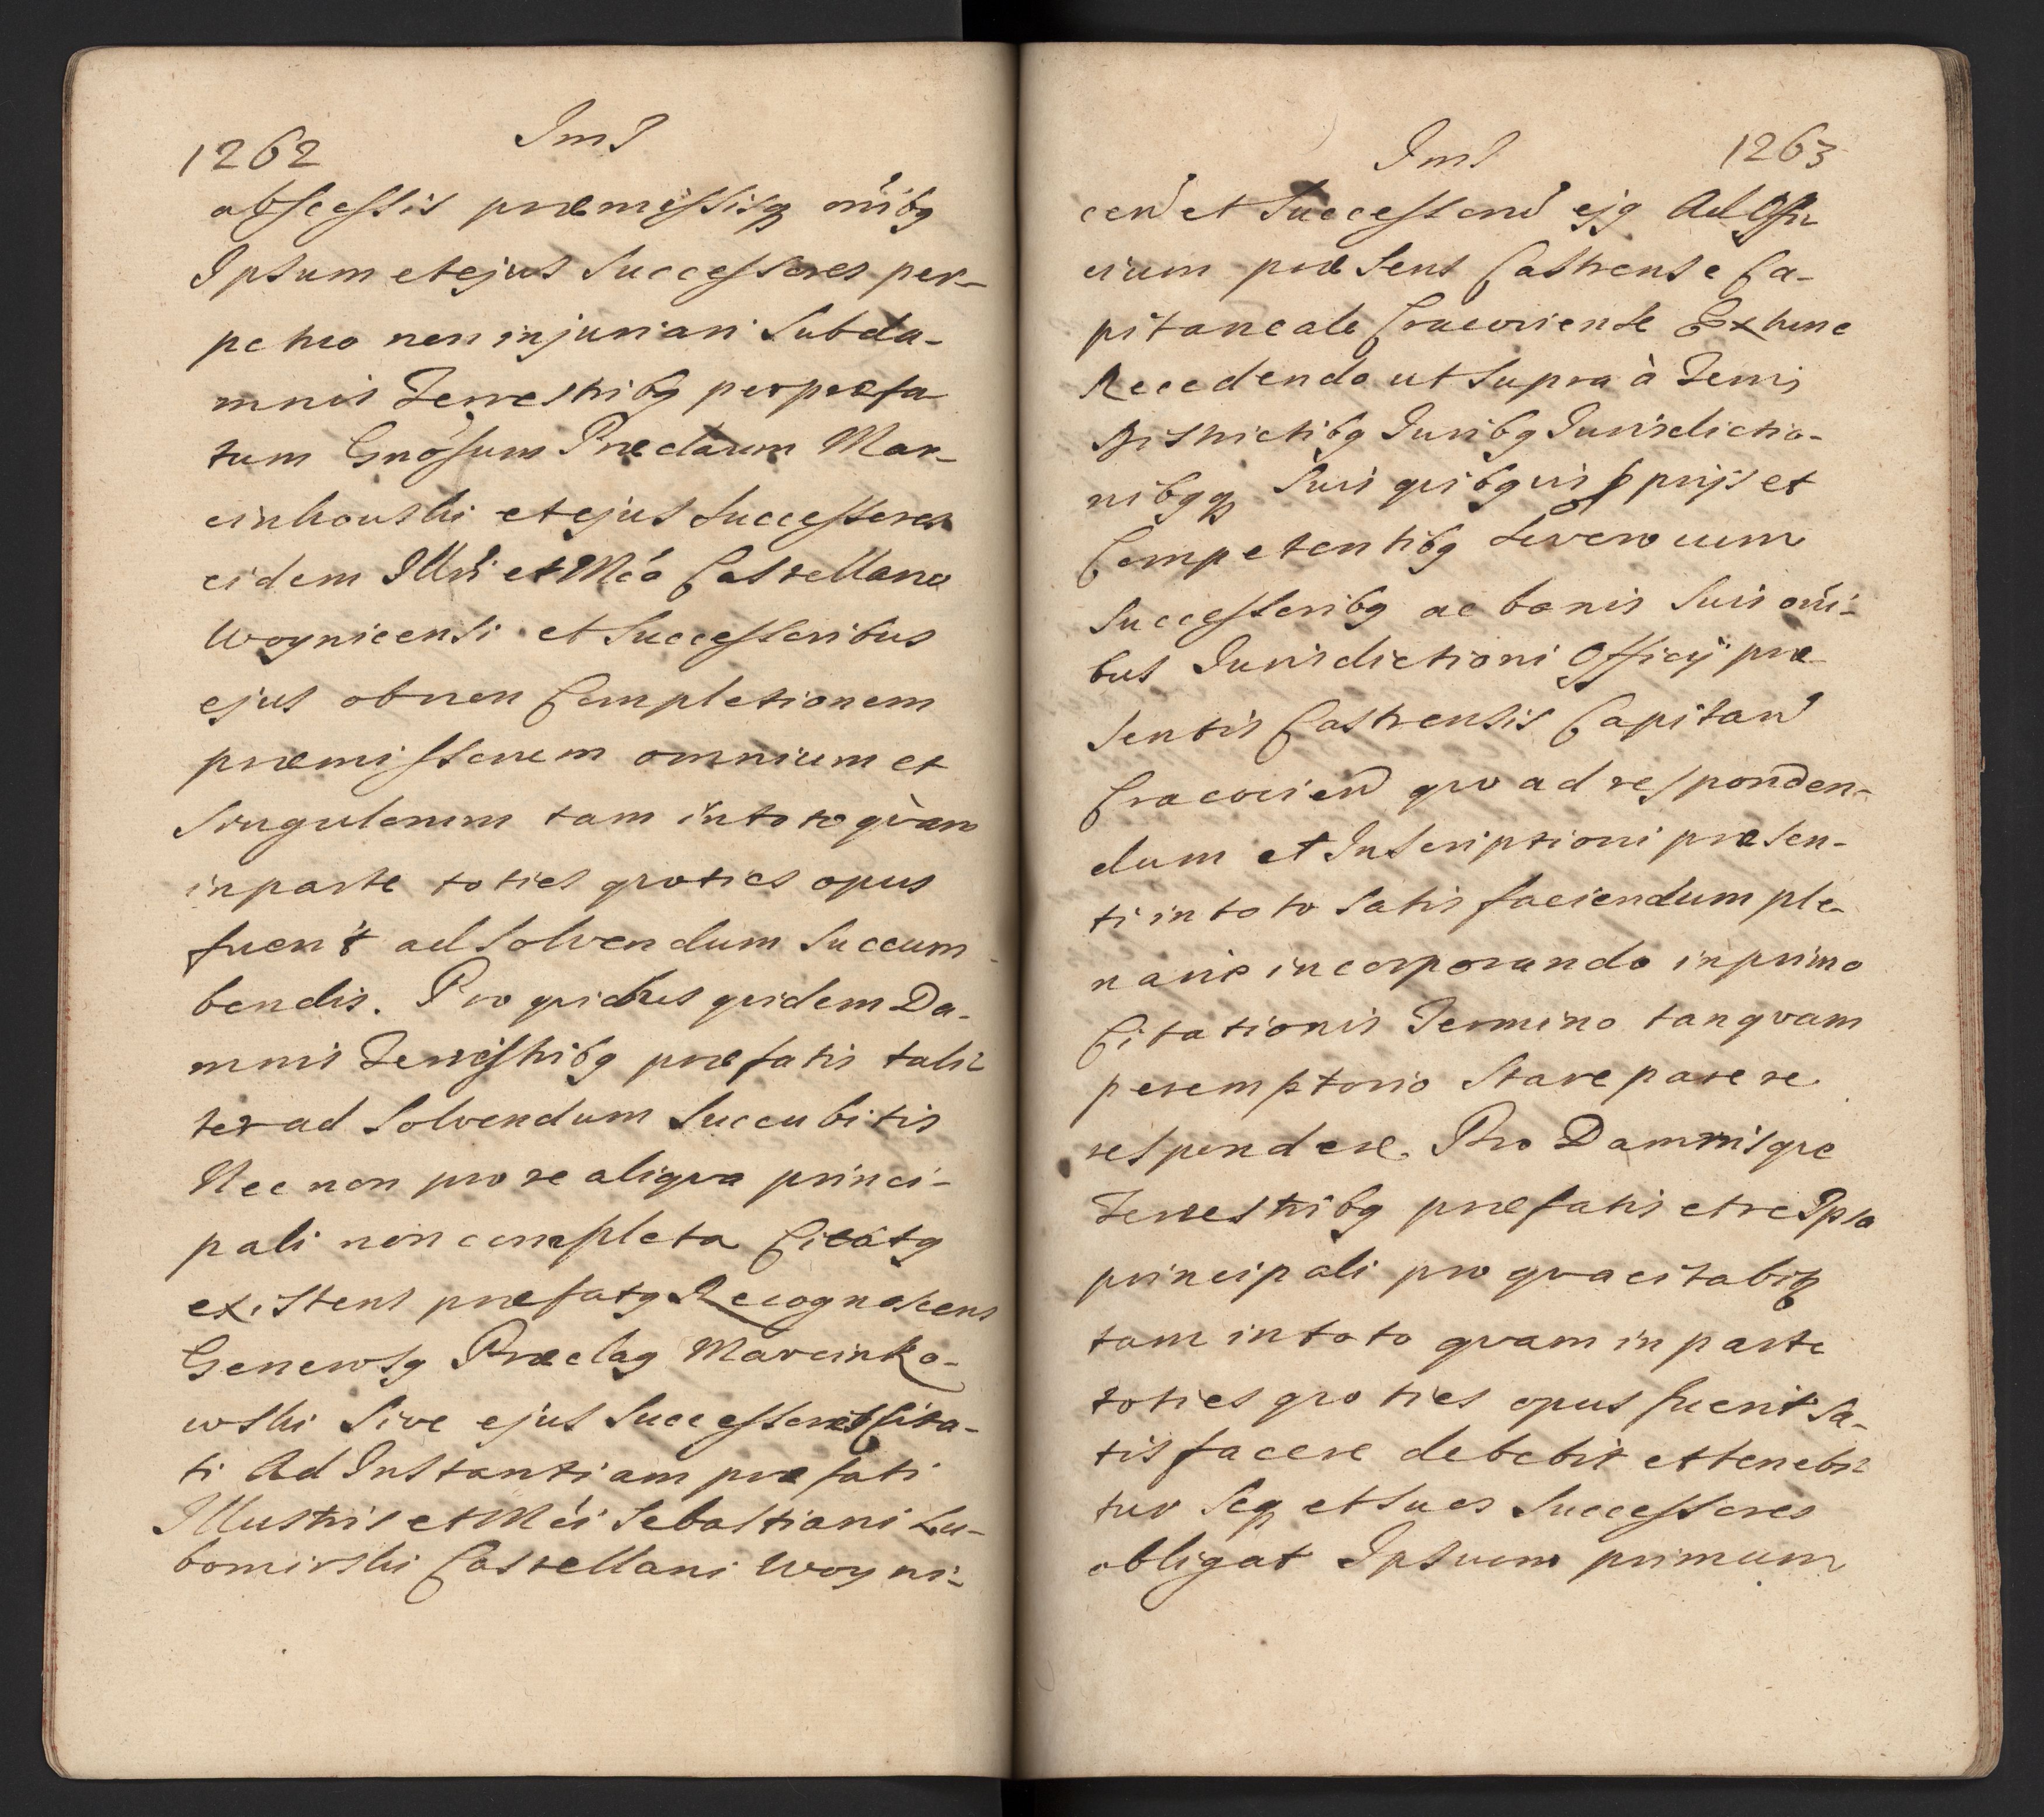 1262 JmJ
abscessis præmissisq, om̃ibq
Ipsum et ejus Successores per-
petuo non injuriari Sub da-
mnis Terrestribq per præfa
tum Gnõsum Præclarum Mar-
cinkowski et ejus Successores
eidem Illri et Mco Castellano
Woynicensi et Successoribus
ejus ob non Completionem
præmissorum omnium et
Singulorum tam in toto qvàm
in parte toties qvoties opus
fuerit ad Solvendum Succum
bendis. Pro qvibus qvidem Da-
mnis Terrestribq præfatis tali-
ter ad Solvendum Succubitis
Nec non pro re aliqva princi-
pali non completa Citatq
existens præfatq Recognoscens
Generosq Præclaq Marcinko-
wski Sive ejus Successores Cita-
ti Ad Instantiam præfati
Illustris et Mci Sebastiani Lu-
bomirski Castellani Woyni-
JmJ 1263
cen et Successorũ ejq Ad Offi-
cium præsens Castrense Ca-
pitaneale Cracoviense Ex tunc
Recedendo ut Supra à Terris
Districtibq Juribq Jurisdictio-
nibqq, Suis qvibqvis pprijs et
Competentibq Severo cum
Successoribq ac bonis Suis om̃i-
bus Jurisdictioni Officij præ-
sentis Castrensis Capitan
Cracovien qvo ad responden-
dum et Inscriptioni præsen-
ti in toto Satis faciendum ple-
narie incorporando in primo
Citationis Termino tanqvam
peremptorio Stare parere
respondere. Pro Damnisqve
Terrestribq præfatis et re Ipsa
principali pro qva citabitq
tam in toto qvam in parte
toties qvoties opus fuerit Sa-
tisfacere debebit et tenebi-
tur Seq, et Suos Successores
obligat Ipsum primum